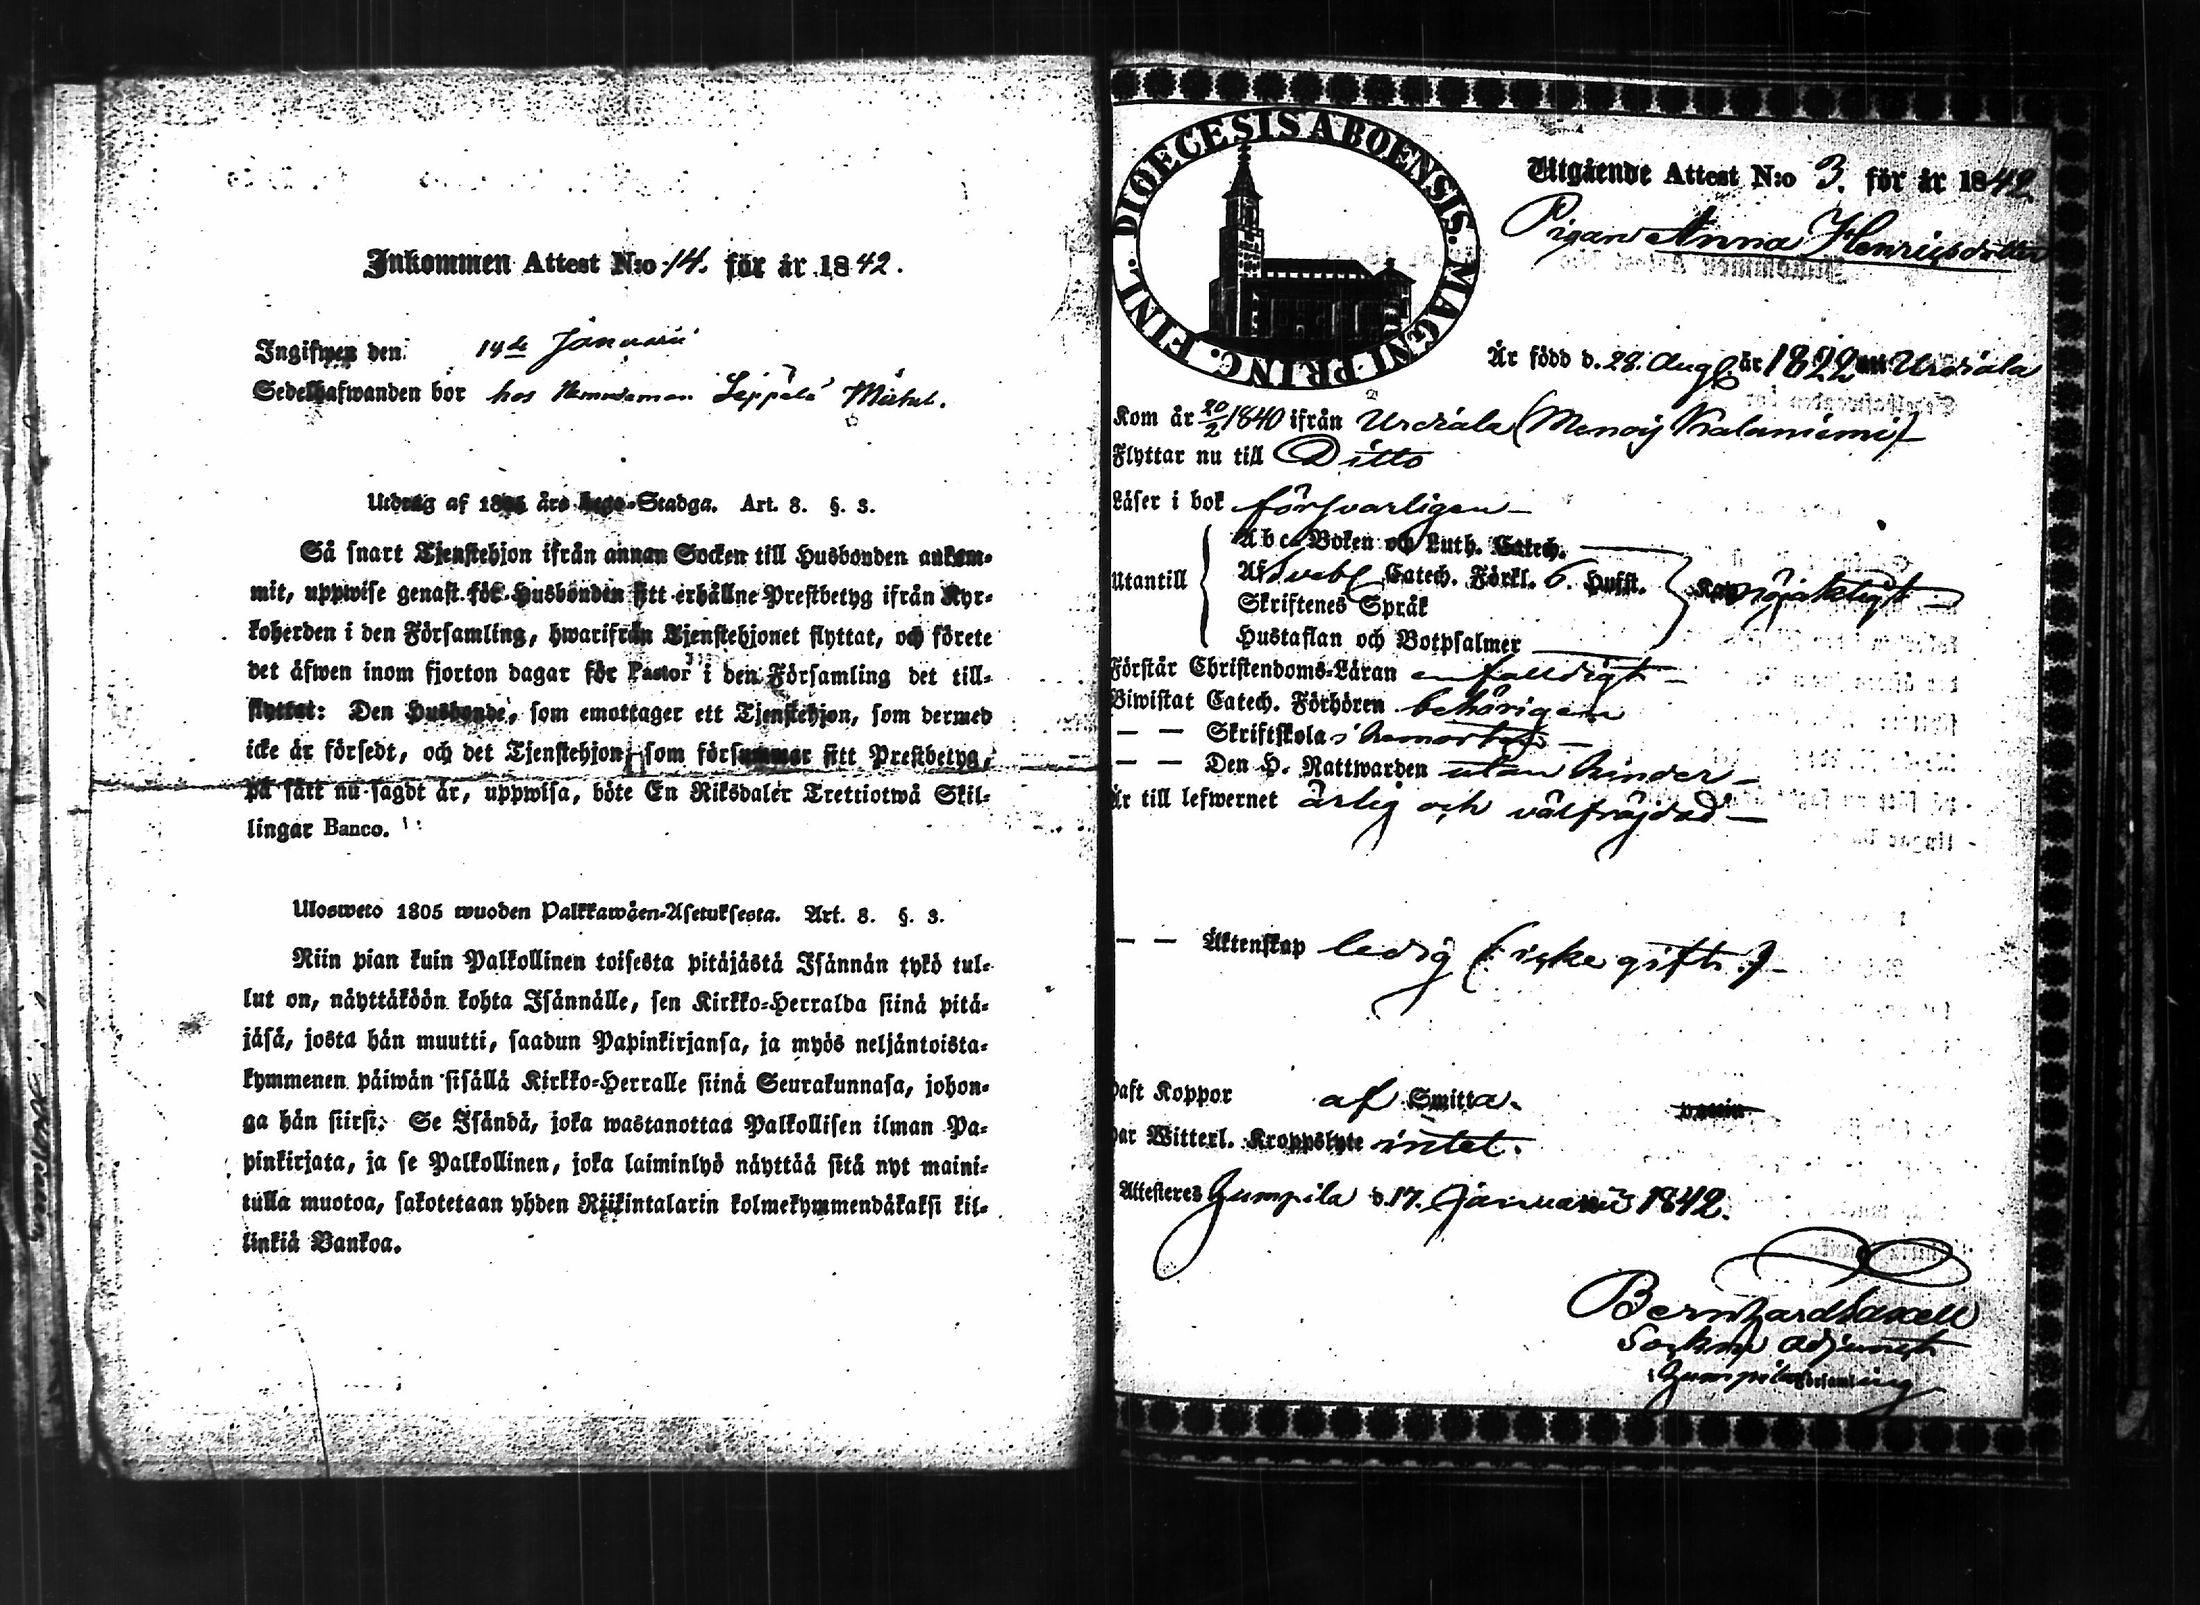 Inkommen Attest N:o 14. för år 1842.
Ingifwen den 14de Januarii
Sedelhafwanden bor hos Leppälä Michel.
Utdrag af 1805 års Lego-Stadga. Art. 8. §. 3.
Så snart Tjenstehjon ifrån annan Socken till Husbonden ankom-
mit, uppwise genast för Husbonden sitt erhållne Prestbetyg ifrån Kyr-
koherden i den Församling, hwarifrån Tjenstehjonet flyttat, och förete
det äfwen inom fjorton dagar för Pastor i den Församling det till-
flyttat: Den Husbonde, som emottager ett Tjenstehjon, som dermed
icke är försedt, och det Tjenstehjon, som försummar sitt Prestbetyg,
på sätt nu sagdt är, uppwisa, böte En Riksdaler Trettiotwå Skil-
lingar Banco.
Ulosweto 1805 wuoden Palkkawäen-Asetuksesta. Art. 8. §. 3.
Niin pian kuin Palkollinen toisesta pitäjästä Isännän tykö tul-
lut on, näyttäköön kohta Isännälle, sen Kirkko-Herralda siinä pitä-
jäsä, josta hän muutti, saadun Papinkirjansa, ja myös neljäntoista-
kymmenen päiwän sisällä Kirkko-Herralle siinä Seurakunnasa, johon-
ga hän siirsi: Se Isändä, joka wastanottaa Palkollisen ilman Pa-
pinkirjata, ja se Palkollinen, joka laiminlyö näyttää sitä nyt maini-
tulla muotoa, sakotetaan yhden Riikintalarin kolmekymmendäkaksi kil-
linkiä Bankoa.
DIOECESIS ABOENSIS. MAGNI PRINC. FINL.
Utgående Attest N:o 3. för år 1842
Pigan Anna Henricsdotter
Är född d. 28. Aug. år 1822 uti Urdiala
Kom år 20/2 1840 ifrån Urdiala (Menoij Kalaniemi)
Flyttar nu till Ditto
Läser i bok försvarligen
Abc-Boken och Luth. Catech.
Utantill Af Sveb. Catech. Förkl. 6. Hufst. Kan nöjaktigt
Skriftenes Språk
Hustaflan och Botpsalmer
Förstår Christendoms-Läran enfalldigt
Biwistat Catech. Förhören behörigen
— — Skriftskola i hemorten
— — Den H. Nattwarden utan hinder
Är till lefwernet ärlig och välfräjdad
— — Äktenskap ledig (: icke gift :)
Haft Koppor af Smitta.
Har Witterl. Kroppslyte intet.
Attesteres Jumpila d. 17. Januarii 1842.
Bernhard Saxell
Sockne Adjunct
i Jumpila Församling